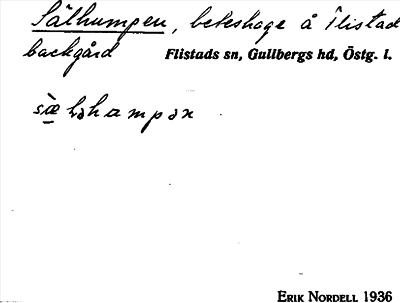 Sälhumpen, beteshage å Flistad
backgård Flistads sn, Gullbergs hd, Östg. l.
sæ̀lhampən
ERIK NORDELL 1936